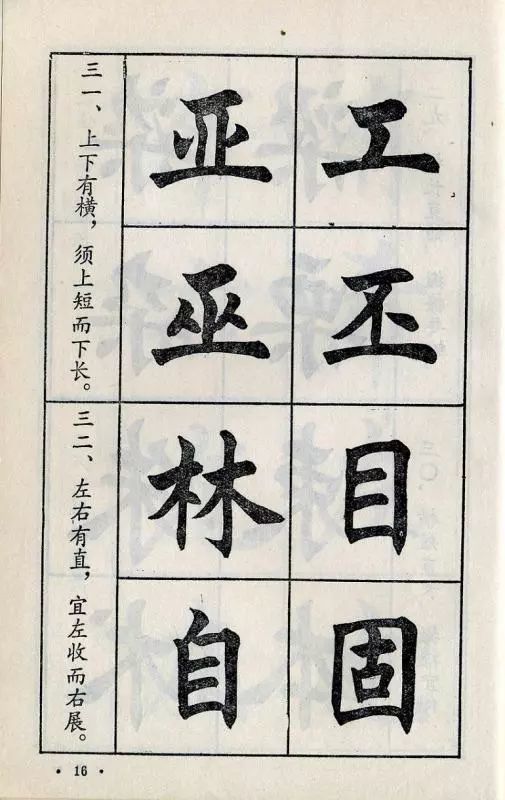 工丕
亚巫
三一、上下有横，须上短而下长。
目固
林自
三二、左右有直，宜左收而右展。
· 16 ·